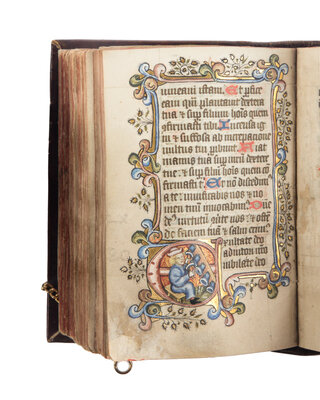 uineam istam. Et perfice
eam quā plantauit dextera
tua & sup filium hoīs quem
cōfirmasti tibi. Incensa ig
ni & suffosa ab increpacione
uultus tui peribunt. Fiat
manus tua sup uirū dexter
tue & sup filium hoīs quem cō
firmasti t. Et nō discedim
a te uiuificabis nos & no
men tuū inuocabim. Dne
ds uirtutū 9uerte nos & ostē
de faciem tuā & salui erim.
Exultate deo
adiutori nō
iubilate deo